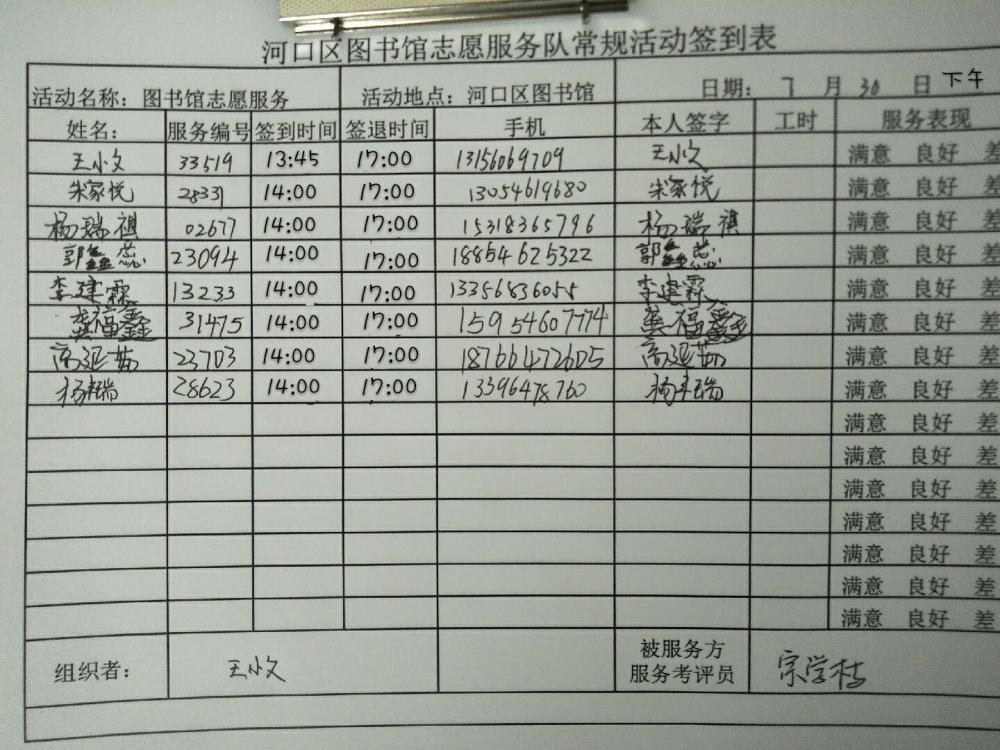 河口区图书馆志愿服务队常规活动签到表
活动名称：图书馆志愿服务 活动地点：河口区图书馆 日期：7月30日 下午
姓名： 服务编号 签到时间 签退时间 手机 本人签字 工时 服务表现
王小文 33519 13:45 17:00 13156069709 王小文 满意 良好 差
朱家悦 28331 14:00 17:00 13054619680 朱家悦 满意 良好 差
杨瑞祺 02677 14:00 17:00 15318365796 杨瑞祺 满意 良好 差
郭鑫蕊 23094 14:00 17:00 18854625322 郭鑫蕊 满意 良好 差
李建霖 13233 14:00 17:00 13356836055 李建霖 满意 良好 差
福鑫 31475 14:00 17:00 15954607774 福鑫 满意 良好 差
高延茹 22703 14:00 17:00 18766472605 高延茹 满意 良好 差
杨瑞 28623 14:00 17:00 13396478760 杨瑞 满意 良好 差
满意 良好 差
满意 良好 差
满意 良好 差
满意 良好 差
满意 良好 差
满意 良好 差
满意 良好 差
组织者： 王小文 被服务方
服务考评员 宗学枝